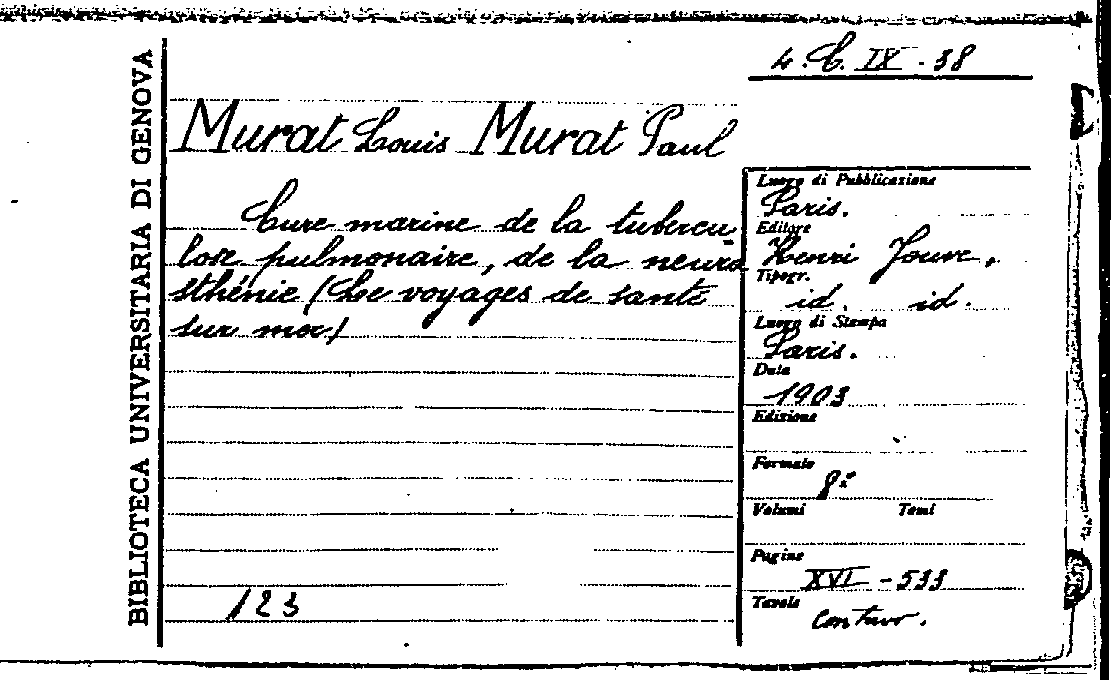 BIBLIOTECA UNIVERSITARIA DI GENOVA
4. C. IX - 38
Murat Louis Murat Paul
Cure marine de la tubercu
lose pulmonaire, de la neura
sthénie (Le voyages de santé
sur mer)
123
Luogo di Pubblicazione
Paris.
Editore
Henri Jouve,
Tipogr.
id. id.
Luogo di Stampa
Paris.
Data
1903
Edizione
Formato
8°
Volumi Tomi
Pagine
XVI - 533
Tavole
con tavo.